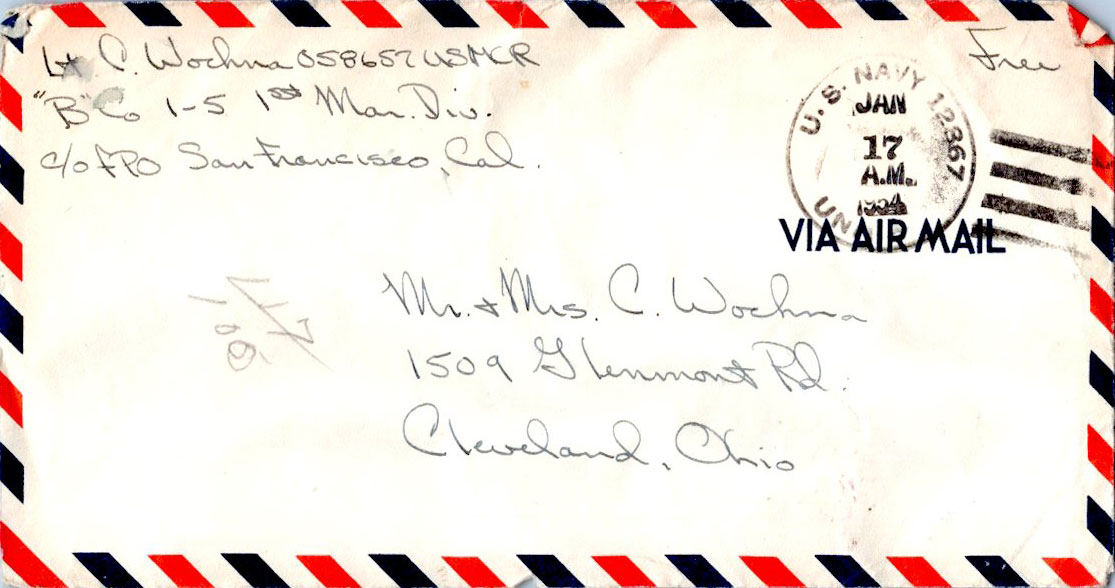 Lt. C. Wochna 058657 USMCR
"B" Co 1-5 1st Mar. Div.
c/o FPO San Francisco, Cal.
Free
U.S. NAVY 12867
JAN
17
A.M.
1954
VIA AIR MAIL
Mr. & Mrs. C. Wochna
1509 Glenmont Rd.
Cleveland, Ohio